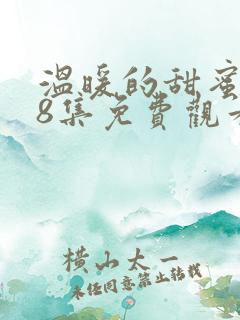 温暖的甜蜜
8集免費觀看
橫山太一
未经同意禁止转载